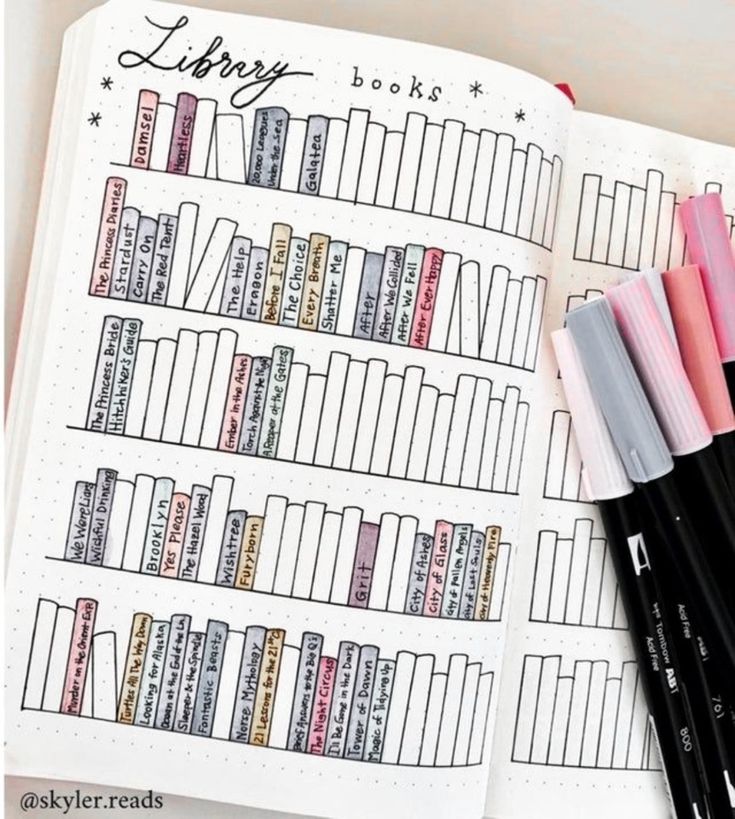 Library books
Damsel
Heartless
20,000 Leagues
Under the Sea
Galatea
The Princess Diaries
Stardust
Carry On
The Red Tent
The Help
Eragon
Before I Fall
The Choice
Every Breath
Shatter Me
After
After We Collided
After We Fell
After Ever Happy
The Princess Bride
Hitchhiker's Guide
Ember in the Ashes
Torch Against the Night
A Reaper at the Gates
We Were Liars
Wishful Drinking
Brooklyn
Yes Please
The Hazel Wood
Wishtree
Furyborn
Grit
City of Ashes
City of Glass
City of Fallen Angels
City of Lost Souls
City of Heavenly Fire
Murder on the Orient EXP.
Turtles All The Way Down
Looking for Alaska
Down at the End of the Ln.
Sleeper & the Spindle
Fantastic Beasts
Norse Mythology
21 Lessons for the 21st C
Brief Answers to the Big Q's
The Night Circus
I'll Be Gone in the Dark
Tower of Dawn
Magic of Tidying Up
Tombow ABT
Acid Free
800
Acid Free
761
@skyler.reads